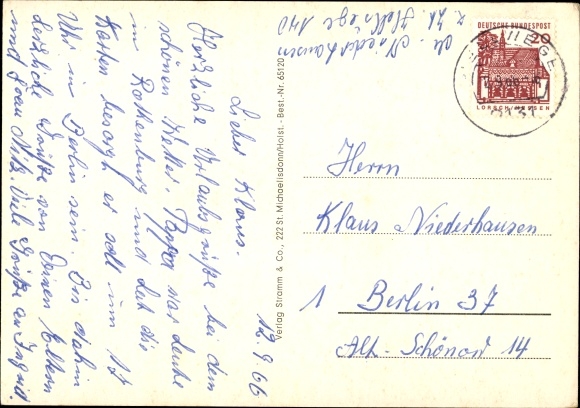 z. Zt. Hellsiege 140
Niederhausen
12.9.66
Lieber Klaus.
Herzliche Urlaubsgrüße bei dem
schönen Wetter. Pappa war heute
in Rothenburg und hat die
Karten besorgt er soll um 17
Uhr in Berlin sein. Bis dahin
herzliche Grüße von Deinen Eltern
und Frau Nitz Viele Grüße an Ingrid.
Verlag Stramm & Co., 222 St. Michaelisdonn/Holst. - Best.-Nr. 65120
DEUTSCHE BUNDESPOST
20
LORSCH/HESSEN
Herrn
Klaus Niederhausen
1 Berlin 37
Alt-Schönow 14